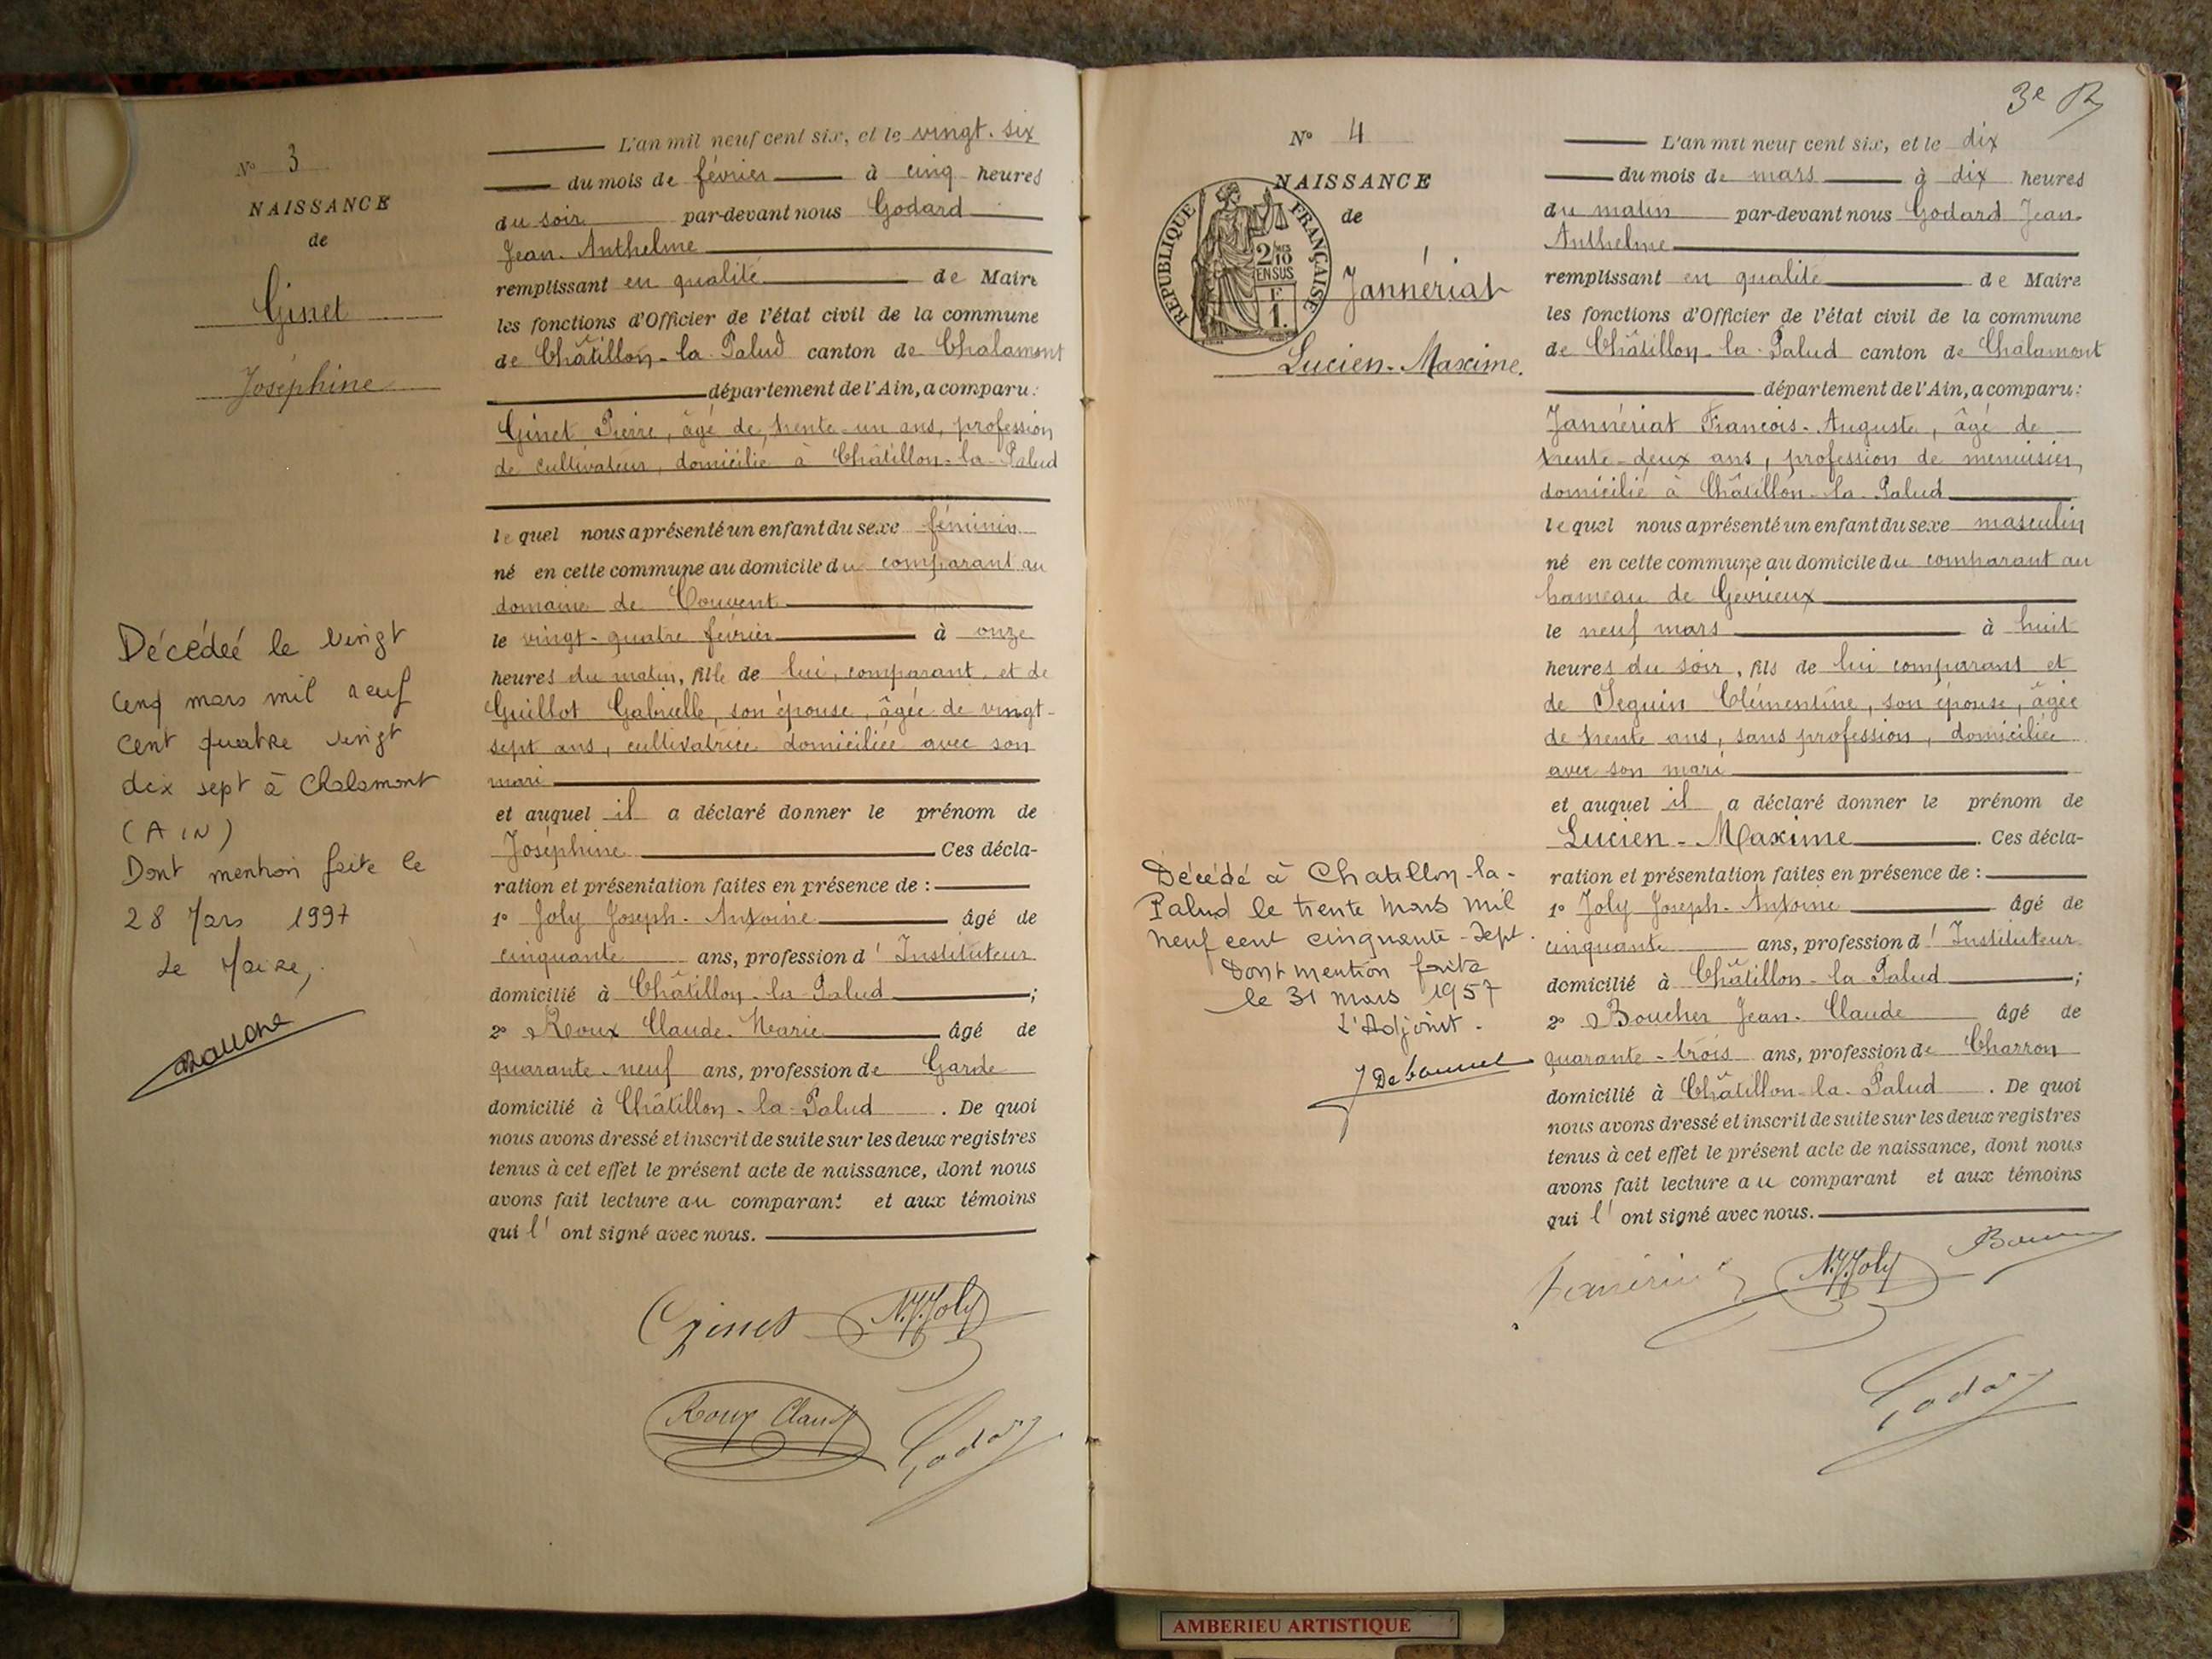 N° 3
NAISSANCE
de
Ginet
Joséphine
Décédée le vingt
cinq mars mil neuf
cent quatre vingt
dix sept à Chalamont
(AIN)
Dont mention faite le
28 Mars 1997
Le Maire,
L'an mil neuf cent six, et le vingt-six
du mois de février à cinq heures
du soir par-devant nous Godard
Jean-Anthelme
remplissant en qualité de Maire
les fonctions d'Officier de l'état civil de la commune
de Châtillon-la-Palud canton de Chalamont
département de l'Ain, a comparu:
Ginet Pierre, âgé de trente-un ans, profession
de cultivateur, domicilié à Châtillon-la-Palud
lequel nous a présenté un enfant du sexe féminin
né en cette commune au domicile du comparant au
domaine de Couvent
le vingt-quatre février à onze
heures du matin, fille de lui, comparant, et de
Guillot Gabrielle, son épouse, âgée de vingt-
sept ans, cultivatrice domiciliée avec son
mari
et auquel il a déclaré donner le prénom de
Joséphine Ces décla-
ration et présentation faites en présence de :
1° Joly Joseph-Antoine âgé de
cinquante ans, profession d'Instituteur
domicilié à Châtillon-la-Palud ;
2° Roux Claude-Marie âgé de
quarante-neuf ans, profession de Garde
domicilié à Châtillon-la-Palud . De quoi
nous avons dressé et inscrit de suite sur les deux registres
tenus à cet effet le présent acte de naissance, dont nous
avons fait lecture au comparant et aux témoins
qui l'ont signé avec nous.
Ginet N.J.Joly
Roux Claude
3e
N° 4
NAISSANCE
de
RÉPUBLIQUE FRANÇAISE
2/10 EN SUS
F
1.
Jannériat
Lucien-Maxime.
Décédé à Chatillon-la-
Palud le trente mars mil
neuf cent cinquante-sept.
Dont mention faite
le 31 mars 1957
L'Adjoint.
L'an mil neuf cent six, et le dix
du mois de mars à dix heures
du matin par-devant nous Godard Jean-
Anthelme
remplissant en qualité de Maire
les fonctions d'Officier de l'état civil de la commune
de Châtillon-la-Palud canton de Chalamont
département de l'Ain, a comparu:
Jannériat François-Auguste, âgé de
trente-deux ans, profession de menuisier,
domicilié à Châtillon-la-Palud
lequel nous a présenté un enfant du sexe masculin
né en cette commune au domicile du comparant au
hameau de Gévrieux
le neuf mars à huit
heures du soir, fils de lui comparant et
de Seguin Clémentine, son épouse, âgée
de trente ans, sans profession, domiciliée
avec son mari
et auquel il a déclaré donner le prénom de
Lucien-Maxime . Ces décla-
ration et présentation faites en présence de :
1° Joly Joseph-Antoine âgé de
cinquante ans, profession d'Instituteur
domicilié à Châtillon-la-Palud ;
2° Boucher Jean-Claude âgé de
quarante-trois ans, profession de Charron
domicilié à Châtillon-la-Palud . De quoi
nous avons dressé et inscrit de suite sur les deux registres
tenus à cet effet le présent acte de naissance, dont nous
avons fait lecture au comparant et aux témoins
qui l'ont signé avec nous.
N.J.Joly
AMBERIEU ARTISTIQUE